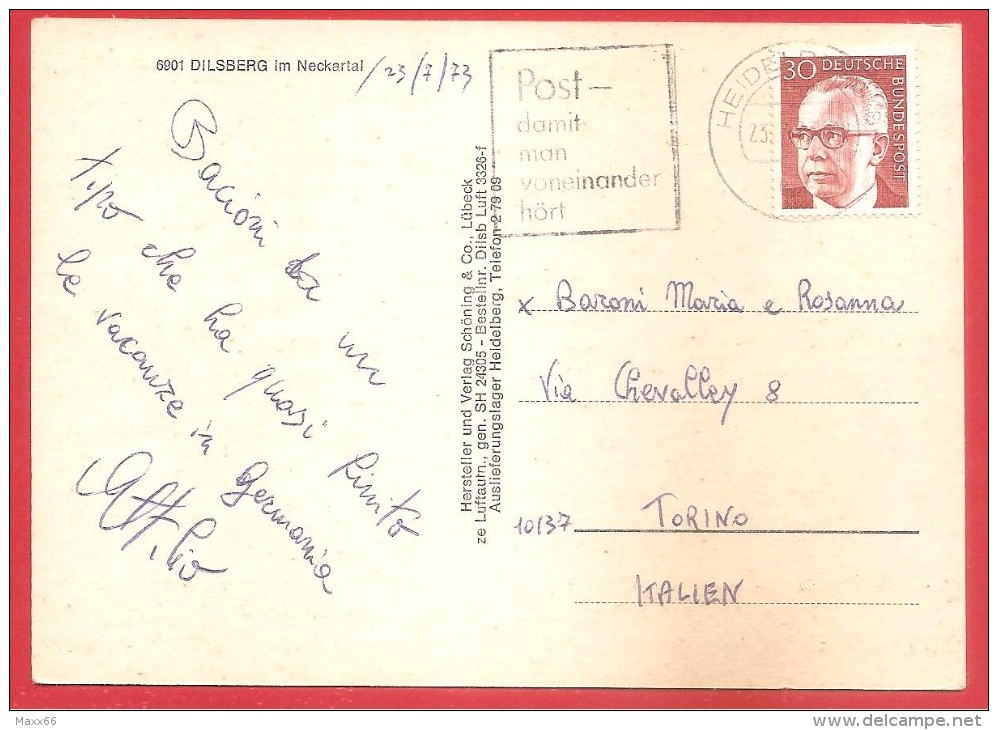 6901 DILSBERG im Neckartal
23/7/73
Bacioni da un
tipo che ha quasi finito
le vacanze in Germania
Attilio
Hersteller und Verlag Schöning & Co., Lübeck
ze Luftaufn., gen. SH 24305 - Bestellnr. Dilsb Luft 3326-f
Auslieferungslager Heidelberg, Telefon 2 79 09
Post-
damit
man
voneinander
hört
HEIDELB
23.
30 DEUTSCHE
BUNDESPOST
x Baroni Maria e Rosanna
Via Chevalley 8
10137 TORINO
ITALIEN
Maxx66
delcampe.net